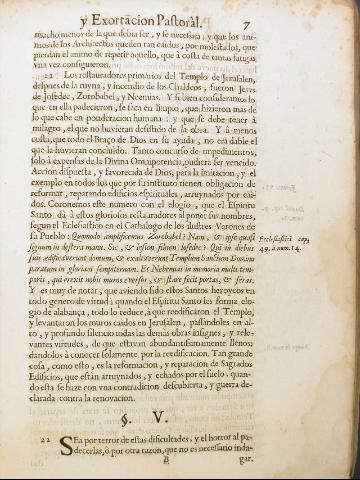 y Exortacion Pastoral. 7
mucho menos de lo que debia ser, y se necesita; y que los ani-
mos de los Architectos queden tan caidos, por molestados, que
pierdan el animo de repetir aquello, que à costa de tantas fatigas
vna vez consiguieron.
21 Los restauradores primarios del Templo de Jerusalèn,
despues de la ruyna, y incendio de los Chaldeos, fueron Jesvs
de Josedec, Zorobabel, y Neemias. Y si bien consideramos lo
que en ella padecieron, se fica en limpio, que hizieron mas de
lo que cabe en ponderacion humana: y que se debe tener à
milagro, el que no huvieran desistido de la obra. Y à menos
costa, que todo el Braço de Dios en su ayuda, no era dable el
que la huvieran concluido. Tanto concurso de impedimentos,
solo à expensas de la Divina Omnipotencia, pudiera ser vencido.
Accion dispuesta, y favorecida de Dios, para la imitacion, y el
exemplo en todos los que por su instituto tienen obligacion de
reformar, reparando edificios espirituales, arruynados, por cai-
dos. Coronemos este numero con el elogio, que el Espiritu
Santo dà à estos gloriosos restauradores al poner sus nombres,
segun el Eclesiastico en el Cathalogo de los ilustres Varones de
su Pueblo: Quomodo amplificemus Zorobabel? Nam, & ipse quasi
signum in dextera manu. Sic, & Iesum filium Iosedec? Qui in diebus
suis ædificaverunt domum, & exaltaverunt Templum Sanctum Domino
paratum in gloriam sempiternam. Et Nehemias in memoria multi tem-
poris, qui erexit nobis muros eversos, & stare fecit portas, & seras.
Ecclesiastici cap.
49. à num. 14.
Y es muy de notar, que aviendo sido estos Santos heroycos en
todo genero de virtud; quando el Espiritu Santo les forma elo-
gio de alabança, todo lo reduce, à que reedificaron el Templo,
y levantaron los muros caidos en Jerusalèn, passandoles en al-
to, y profundo silencio todas las demàs obras insignes, y rele-
vantes virtudes, de que estavan abundantissimamente llenos;
dandolos à conocer solamente por la reedificacion. Tan grande
cosa, como esto, es la reformacion, y reparacion de Sagrados
Edificios, que estàn arruynados, y echados por el suelo; quan-
do esta se haze con vna contradicion descubierta, y guerra de-
clarada contra la renovacion.
§. V.
22 SEa por terror de estas dificultades, y el horror al pa-
decerlas, ò por otra razon, que no es necessatio inda-
B gar.